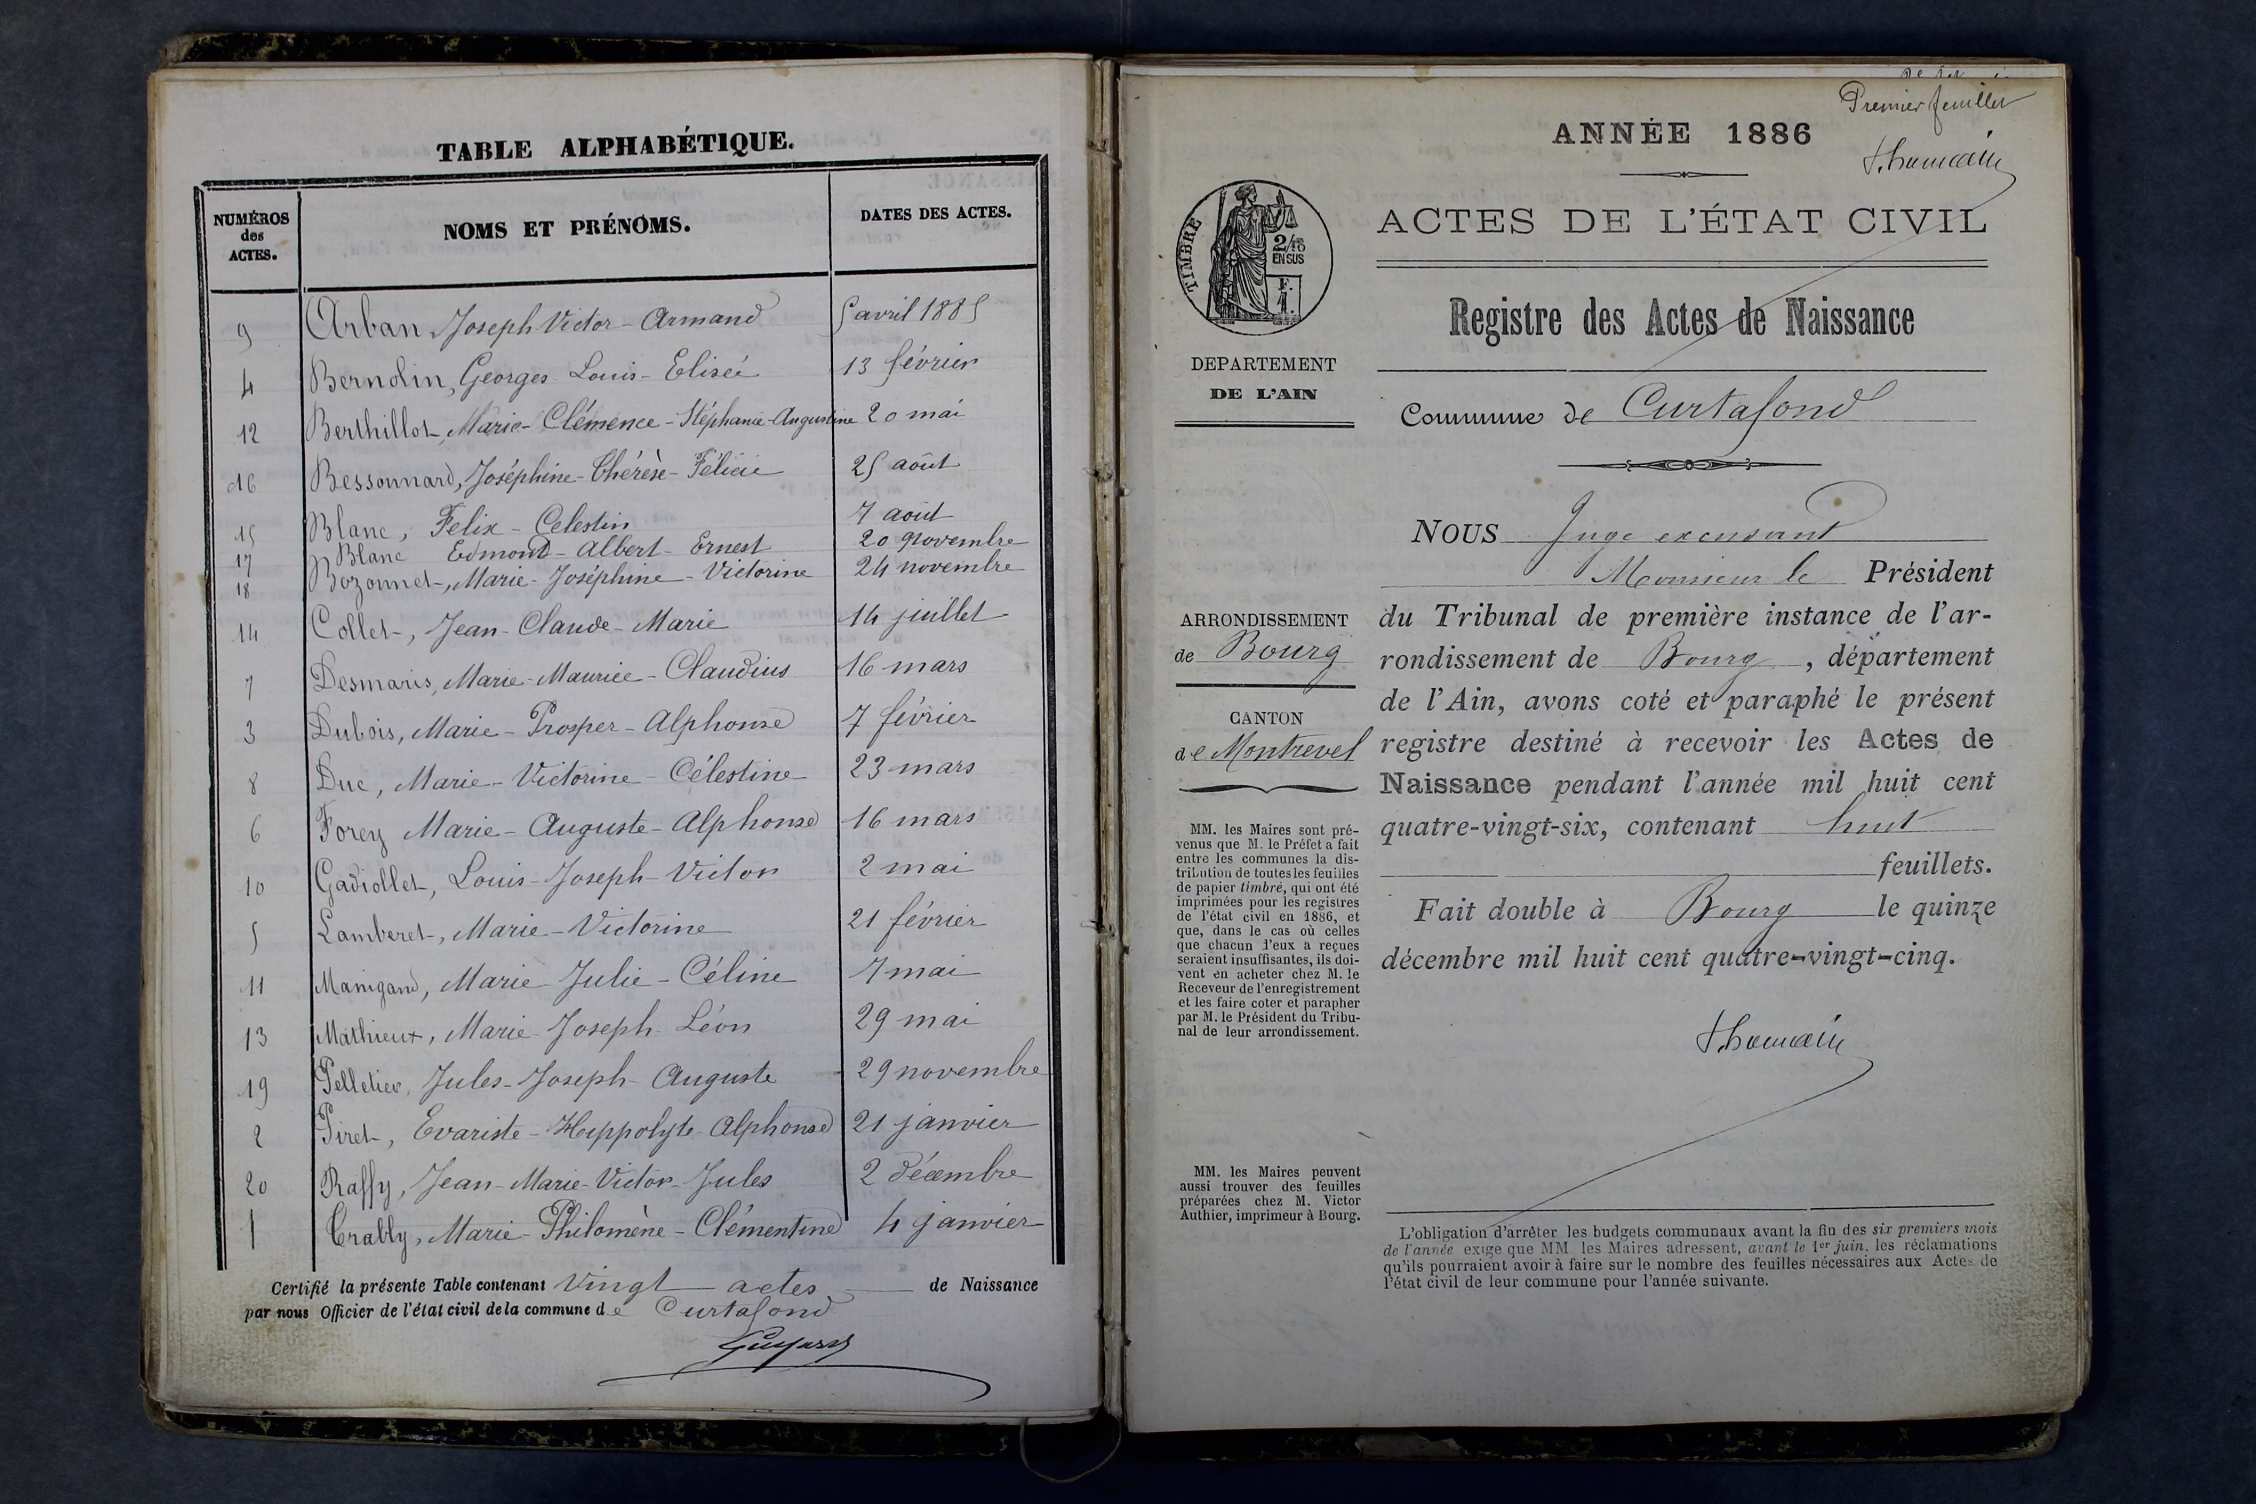 TABLE ALPHABÉTIQUE.
NUMÉROS des ACTES. NOMS ET PRÉNOMS. DATES DES ACTES.
9 Arban Joseph Victor - Armand 5 avril 1885
4 Bernolin, Georges Louis - Elisée 13 février
12 Berthillot, Marie - Clémence - Stéphanie - Augustine 20 mai
16 Bessonnard, Joséphine - Thérèse - Félicie 25 août
15 Blanc, Felix - Celestin 7 août
17 Blanc Edmond - Albert - Ernest 20 novembre
18 Bozonnet, Marie - Joséphine - Victorine 24 novembre
14 Collet, Jean - Claude - Marie 14 juillet
7 Desmaris, Marie - Maurice - Claudius 16 mars
3 Dubois, Marie - Prosper - Alphonse 7 février
8 Duc, Marie - Victorine - Célestine 23 mars
6 Forey Marie - Auguste - Alphonse 16 mars
10 Gadiollet, Louis - Joseph - Victor 2 mai
5 Lamberet, Marie - Victorine 21 février
11 Manigand, Marie Julie - Céline 7 mai
13 Mathieux, Marie Joseph Léon 29 mai
19 Pelletier, Jules - Joseph Auguste 29 novembre
2 Piret, Evariste - Hippolyte Alphonse 21 janvier
20 Raffy, Jean - Marie - Victor - Jules 2 décembre
1 Trably, Marie - Philomène - Clémentine 4 janvier
Certifié la présente Table contenant Vingt actes de Naissance
par nous Officier de l'état civil de la commune de Curtafond
Premier feuillet
ANNÉE 1886
ACTES DE L'ÉTAT CIVIL
TIMBRE
2/10 EN SUS
F. 1.
Registre des Actes de Naissance
DEPARTEMENT
DE L'AIN
Commune de Curtafond
NOUS Juge excusant
Monsieur le Président
ARRONDISSEMENT
de Bourg
CANTON
de Montrevel
du Tribunal de première instance de l'ar-
rondissement de Bourg, département
de l'Ain, avons coté et paraphé le présent
registre destiné à recevoir les Actes de
Naissance pendant l'année mil huit cent
quatre-vingt-six, contenant huit
feuillets.
Fait double à Bourg le quinze
décembre mil huit cent quatre-vingt-cinq.
MM. les Maires sont pré-
venus que M. le Préfet a fait
entre les communes la dis-
tribution de toutes les feuilles
de papier timbré, qui ont été
imprimées pour les registres
de l'état civil en 1886, et
que, dans le cas où celles
que chacun d'eux a reçues
seraient insuffisantes, ils doi-
vent en acheter chez M. le
Receveur de l'enregistrement
et les faire coter et parapher
par M. le Président du Tribu-
nal de leur arrondissement.
MM. les Maires peuvent
aussi trouver des feuilles
préparées chez M. Victor
Authier, imprimeur à Bourg.
L'obligation d'arrêter les budgets communaux avant la fin des six premiers mois
de l'année exige que MM. les Maires adressent, avant le 1er juin, les réclamations
qu'ils pourraient avoir à faire sur le nombre des feuilles nécessaires aux Actes de
l'état civil de leur commune pour l'année suivante.